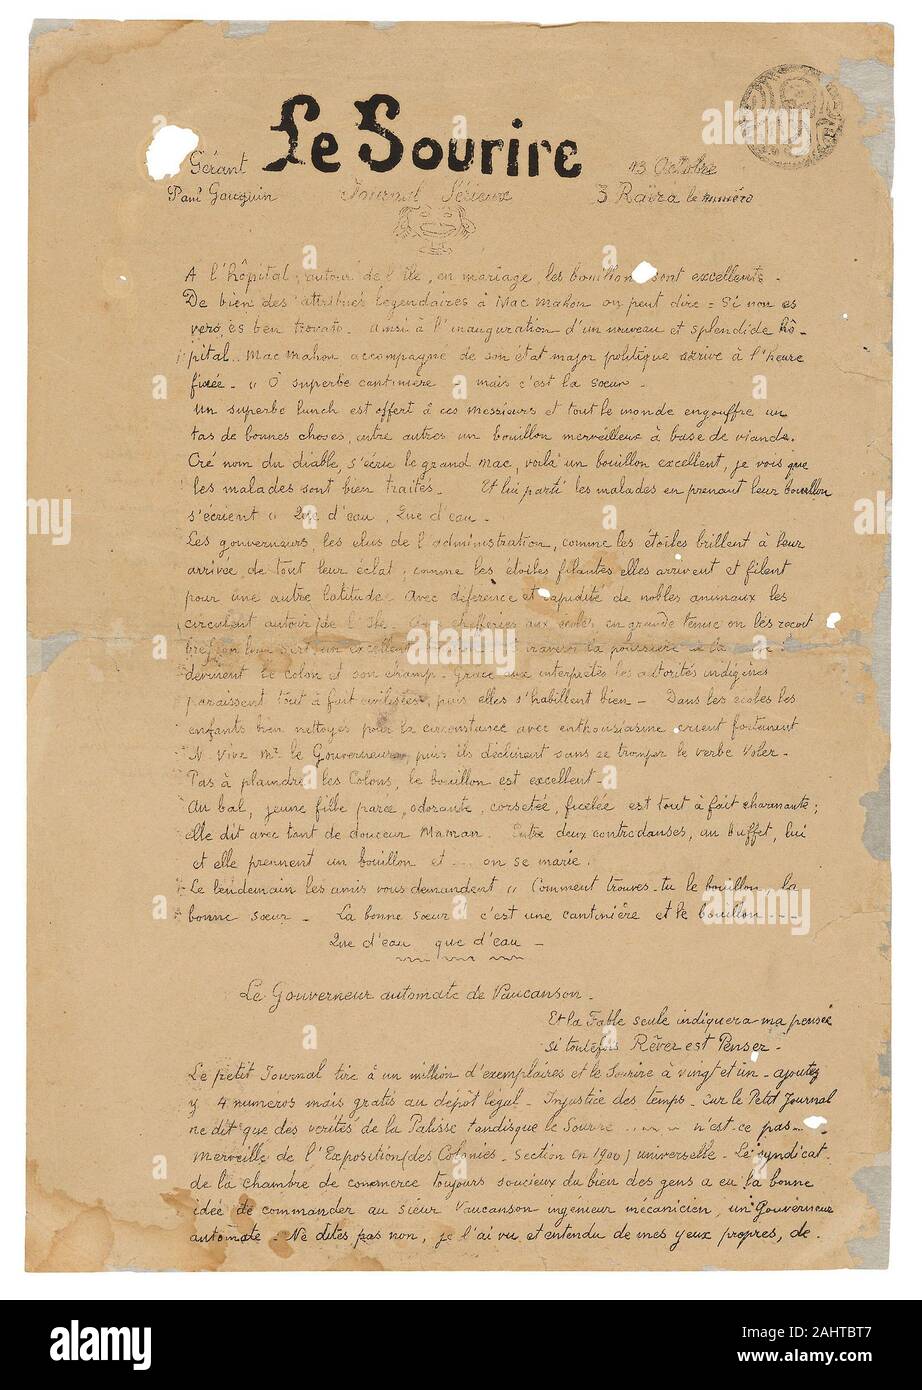 Le Sourire
Gérant
Paul Gauguin
Journal Sérieux
13 Octobre
3 Raïra le numéro
A l'hôpital, autour de l'île, en mariage, les bouillons sont excellents -
De bien des attribués légendaires à Mac Mahon on peut dire = Si non es
vero es ben trovato - Ainsi à l'inauguration d'un nouveau et splendide hô-
pital - Mac Mahon accompagné de son état major politique arrive à l'heure
fixée - " O superbe cantinière - mais c'est la sœur -
Un superbe lunch est offert à ces messieurs et tout le monde engouffre un
tas de bonnes choses, entre autres un bouillon merveilleux à base de viande.
Cré nom du diable, s'écrie le grand Mac, voilà un bouillon excellent, je vois que
les malades sont bien traités. Et lui parti les malades en prenant leur bouillon
s'écrient " Que d'eau, Que d'eau -
Les gouverneurs, les élus de l'administration, comme les étoiles brillent à leur
arrivée de tout leur éclat ; comme les étoiles filantes elles arrivent et filent
pour une autre latitude Avec déférence et rapidité de nobles animaux les
circulent autour de l'Ile. Aux chefferies aux écoles en grande tenue on les reçoit
bref on leur sert un excellent bouillon et à travers la poussière de la
devinent le colon et son champ - Grâce aux interprètes les autorités indigènes
paraissent tout à fait civilisées, puis elles s'habillent bien - Dans les écoles les
enfants bien nettoyés pour la circonstance avec enthousiasme crient fortement
Vive Mr le Gouverneur puis ils déclinent sans se tromper le verbe Voler -
Pas à plaindre les Colons, le bouillon est excellent -
Au bal, jeune fille parée, odorante, corsetée, ficelée est tout à fait charmante ;
elle dit avec tant de douceur Maman. Entre deux contredanses, au buffet, lui
et elle prennent un bouillon et ... on se marie.
Le lendemain les amis vous demandent " Comment trouves-tu le bouillon, la
bonne sœur - La bonne sœur c'est une cantinière et le bouillon ---
Que d'eau que d'eau -
Le Gouverneur automate de Vaucanson -
Et la Fable seule indiquera ma pensée
si toutefois Rêver est Penser -
Le petit Journal tire à un million d'exemplaires et le Sourire à vingt et un - ajoutez
y 4 numeros mais gratis au depot légal - Injustice des temps - car le Petit Journal
ne dit que des verités de la Palisse tandis que le Sourire ..... n'est-ce pas -
Merveille de l'Exposition (des Colonies - Section en 1900) universelle - Le syndicat
de la chambre de commerce toujours soucieux du bien des gens a eu la bonne
idée de commander au sieur Vaucanson ingénieur mécanicien, un Gouverneur
automate - Ne dites pas non, je l'ai vu et entendu de mes yeux propres, de
alamy
alamy
alamy
alamy
Image ID: 2AHTBT7
www.alamy.com